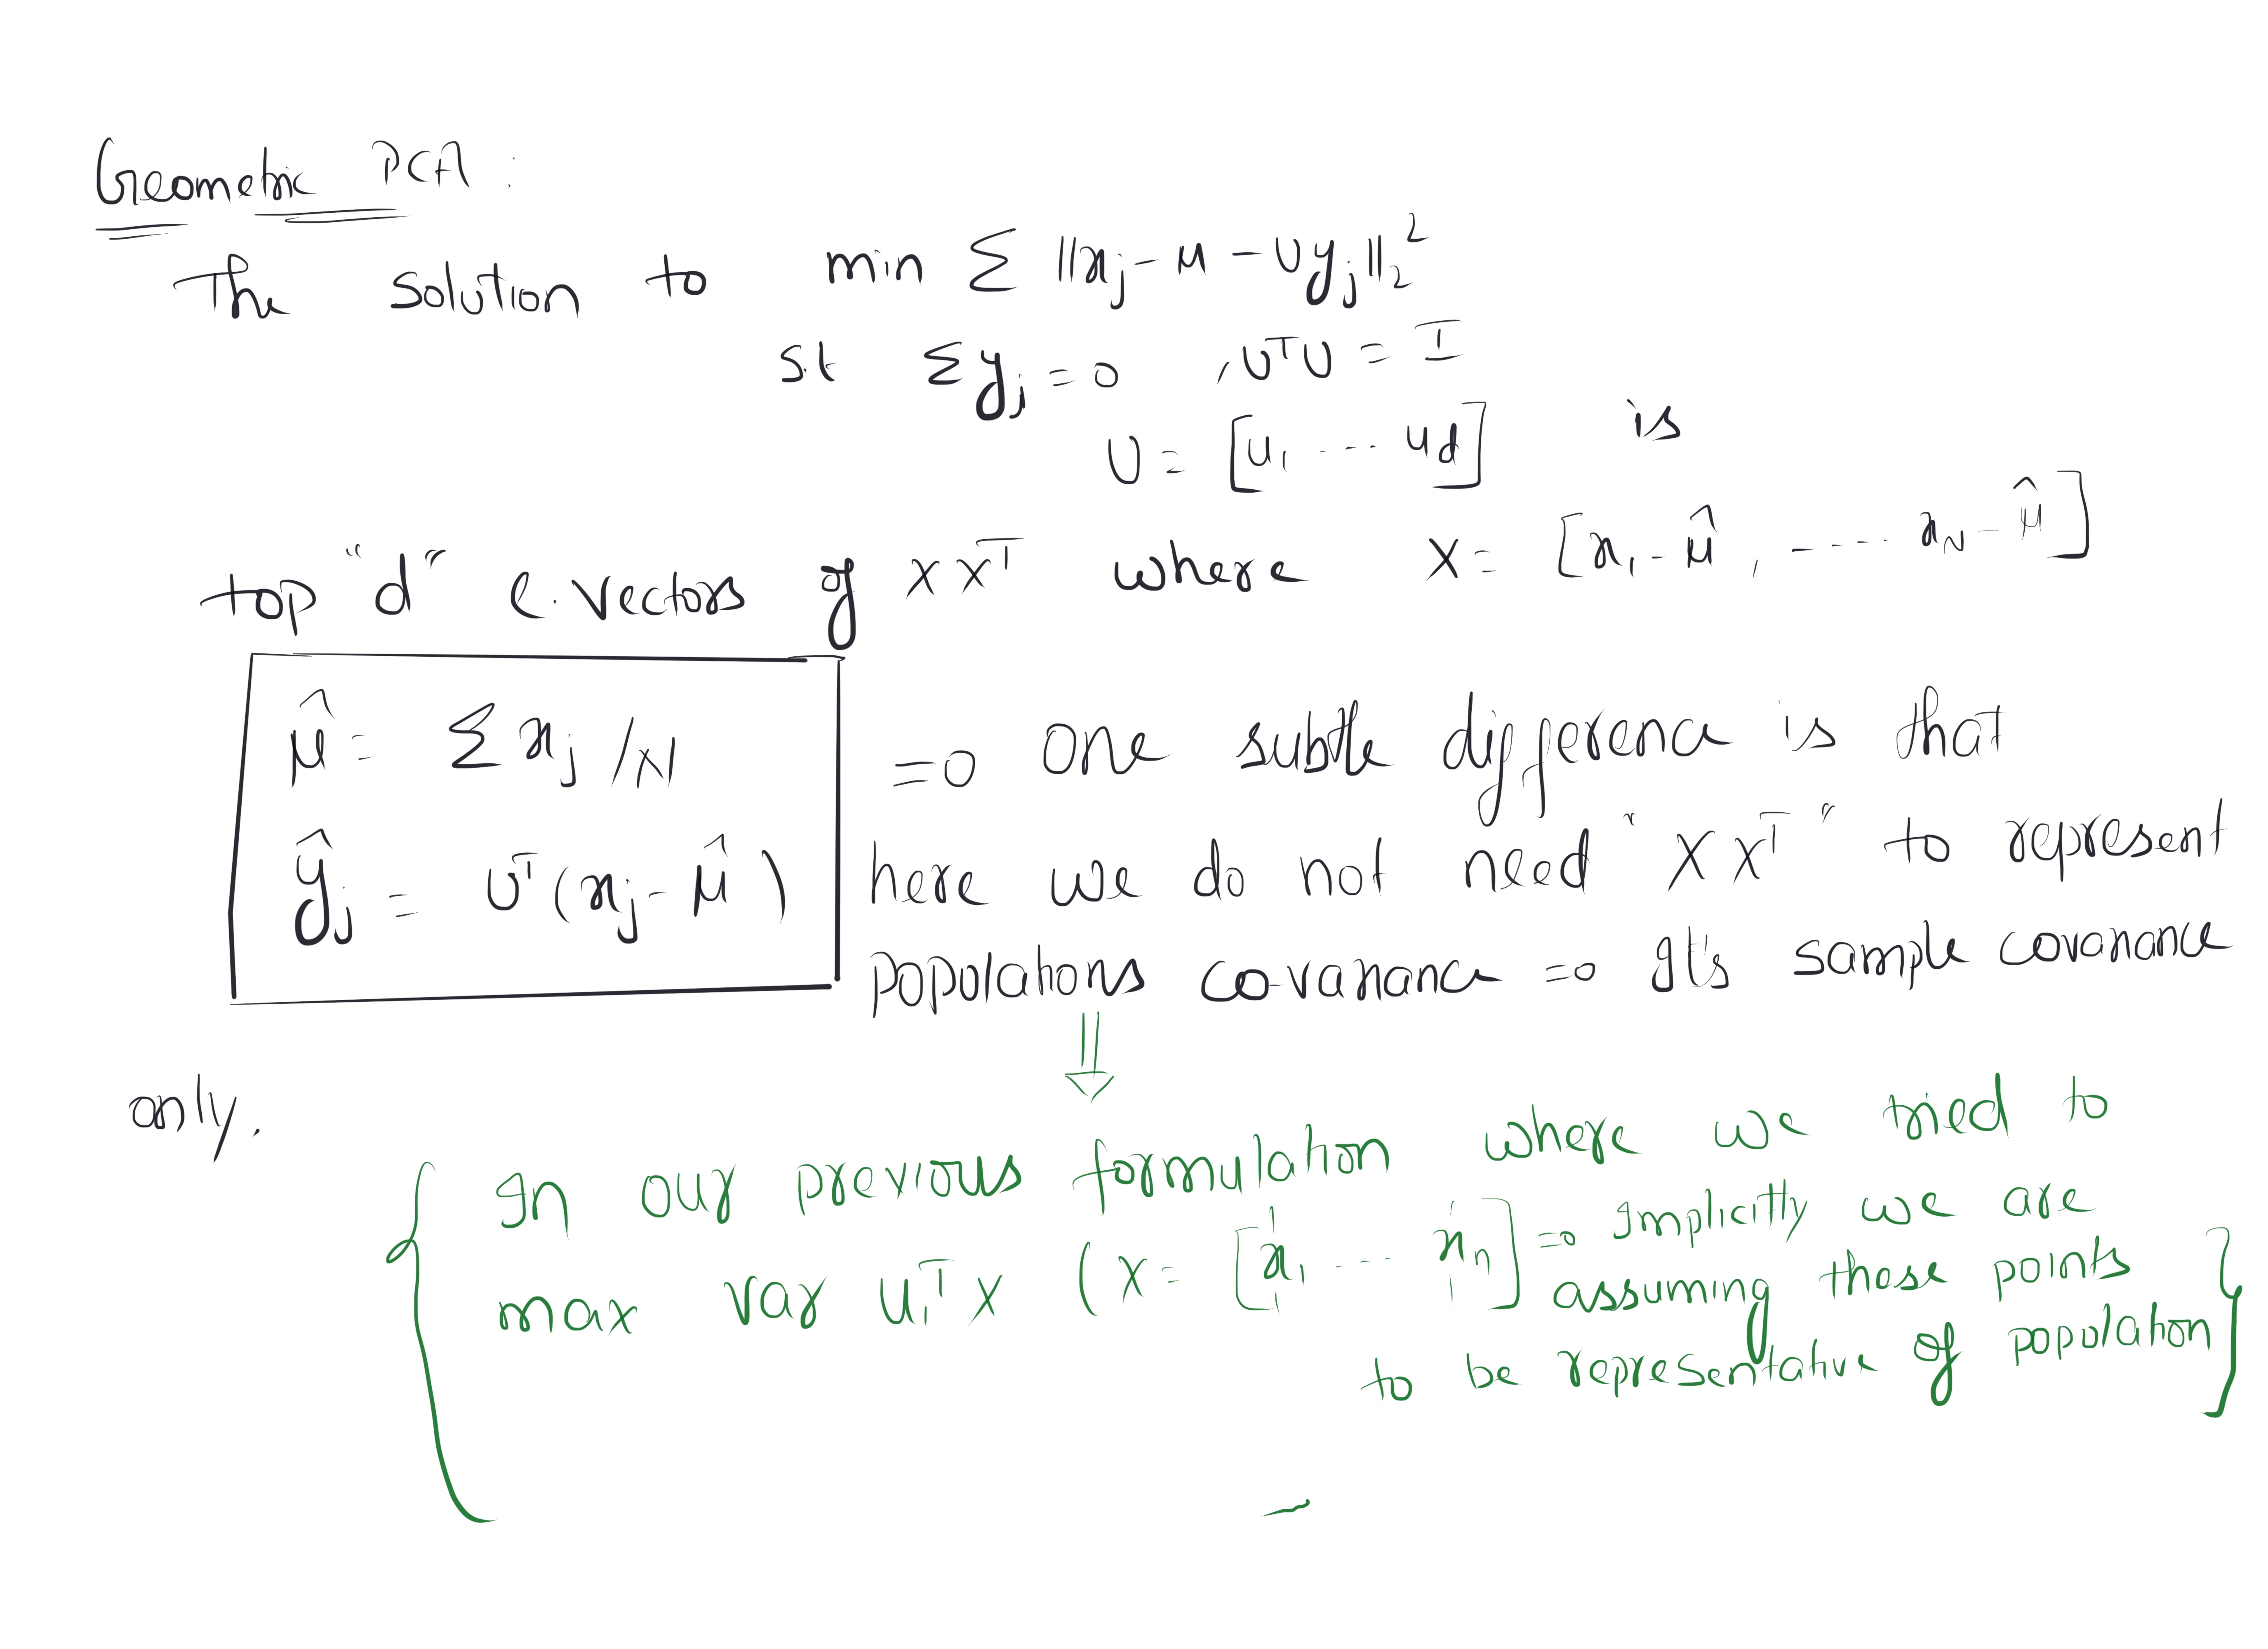 Geometric PCA :
The solution to min Σ ||xj - μ - Uyj||₂²
s.t Σ yj = 0 , UᵀU = I
U = [u₁ ---- ud] is
top "d" e.vectors of XXᵀ where X = [x₁ - μ̂ , ---- xN - μ̂]
μ̂ = Σ xj /N ⇒ One subtle difference is that
ŷj = Uᵀ(xj - μ̂) here we do not need "XXᵀ" to represent
populations co-variance ⇒ It's sample covariance
only.
⇓
{ In our previous formulation where we tried to
max var u₁ᵀX (X = [x₁ ---- xn] ⇒ Implicitly we are
assuming those points
to be representative of population }